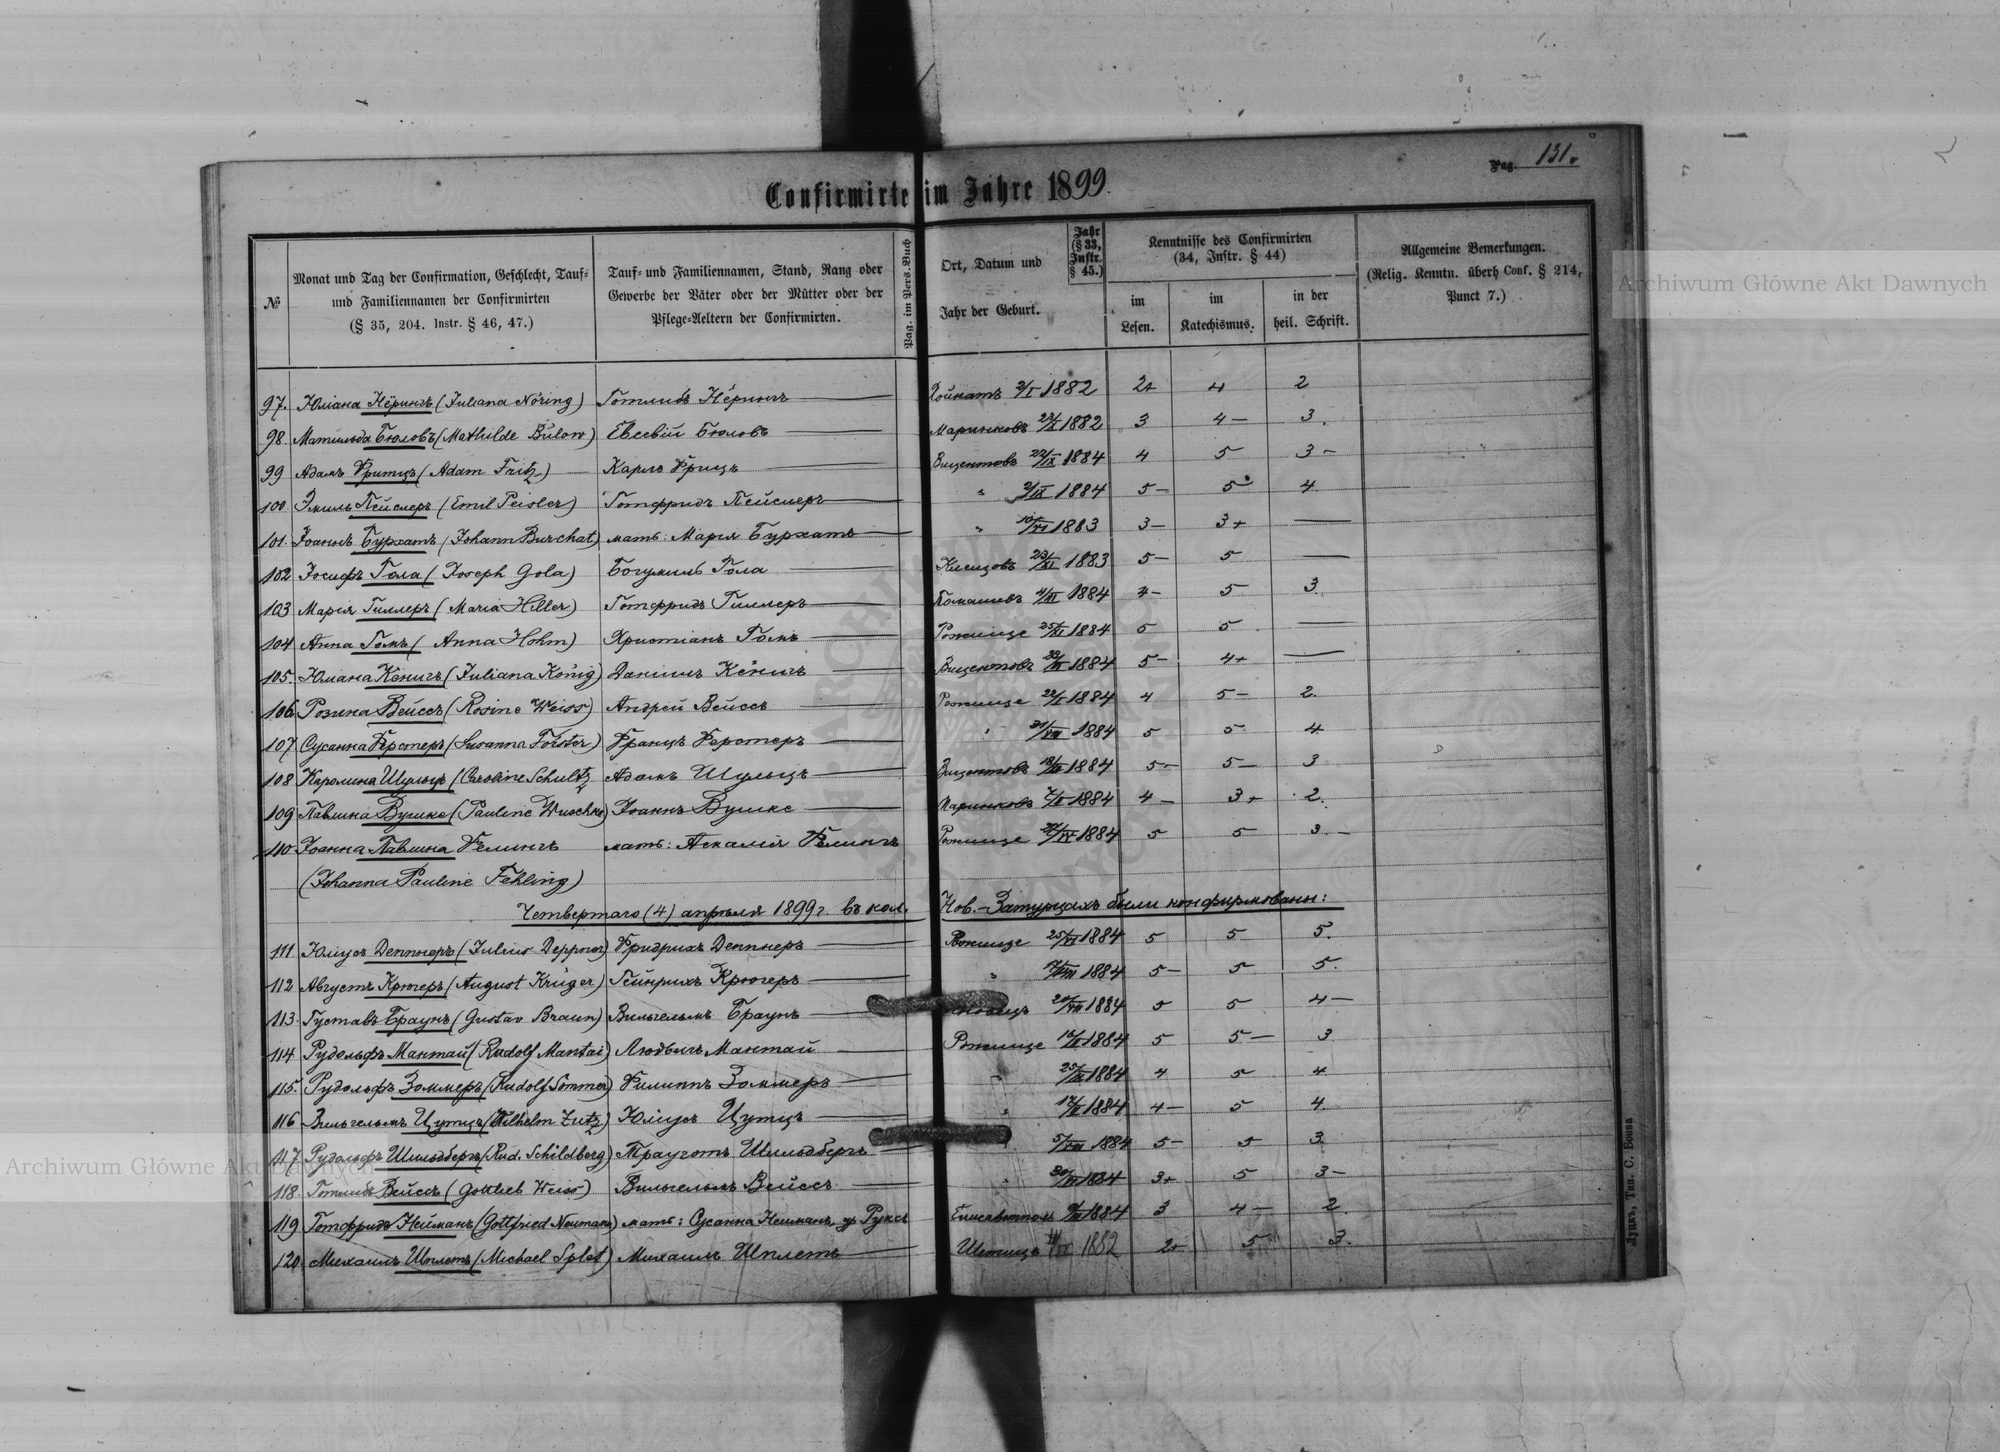 Pag. 131.
Confirmirte im Jahre 1899.
№
Monat und Tag der Confirmation, Geschlecht, Tauf-
und Familiennamen der Confirmirten
(§ 35, 204. Instr. § 46, 47.)
Tauf- und Familiennamen, Stand, Rang oder
Gewerbe der Väter oder der Mütter oder der
Pflege-Aeltern der Confirmirten.
Pag. im Pers. Buch
Ort, Datum und
Jahr der Geburt.
Jahr
(§ 33,
Instr.
§ 45.)
Kenntnisse des Confirmirten
(34, Instr. § 44)
im
Lesen.
im
Katechismus.
in der
heil. Schrift.
Allgemeine Bemerkungen.
(Relig. Kenntn. überh Conf. § 214,
Punct 7.)
97. Юліана Нёрингъ (Juliana Nöring) Готлибъ Нёрингъ 2/I 1882 2+ 4 2
98. Матильда Бюловъ (Mathilde Bülow) Евсевій Бюловъ Маринковъ 1882 3 4- 3.
99 Адамъ Фритцъ (Adam Fritz) Карлъ Фрицъ Вицентовъ 22/IX 1884 4 5 3-
100 Эмиль Пейслеръ (Emil Peisler) Готфридъ Пейслеръ " 2/IX 1884 5- 5 4
101. Іоаннъ Бурхатъ (Johann Burchat) мать: Марія Бурхатъ " 1883 3- 3+ —
102 Іосифъ Гола (Joseph Gola) Богумилъ Гола 23/XI 1883 5- 5 —
103 Марія Гиллеръ (Maria Hiller) Готфридъ Гиллеръ 1884 4- 5 3.
104 Анна Гомъ (Anna Hohm) Христіанъ Гомъ Рожище 1884 5 5 —
105. Юліана Кёнигъ (Juliana König) Даніилъ Кёнигъ Вицентовъ 1884 5- 4+ —
106 Розина Вейссъ (Rosine Weiss) Андрей Вейссъ Рожище 22/I 1884 4 5- 2.
107 Сусанна Фёрстеръ (Susanna Förster) Францъ Ферстеръ " 1884 5 5 4
108 Каролина Шульцъ (Caroline Schultz) Адамъ Шульцъ Вицентовъ 1884 5- 5- 3
109 Павлина Вушке (Pauline Wuschke) Іоаннъ Вушке Маринковъ 1884 4- 3+ 2.
110 Іоанна Павлина Фелингъ мать: Фелингъ Рожище 1884 5 5 3.-
(Johanna Pauline Fehling)
Четвертаго (4) апрѣля 1899 г. въ кол. Нов.-Затурцахъ были конфирмованы:
111 Юліусъ Депнеръ (Julius Deppner) Фридрихъ Депнеръ Рожище 1884 5 5 5.
112 Августъ Крюгеръ (August Krüger) Гейнрихъ Крюгеръ " 1884 5- 5 5.
113. Густавъ Браунъ (Gustav Braun) Вильгельмъ Браунъ 1884 5 5 4-
114. Рудольфъ Мантай (Rudolf Mantai) Людвигъ Мантай Рожище 1884 5 5- 3
115. Рудольфъ Зоммеръ (Rudolf Sommer) Филиппъ Зоммеръ " 1884 4 5 4
116 Вильгельмъ Цутцъ (Wilhelm Zutz) Юліусъ Цутцъ " 1884 4- 5 4
117. Рудольфъ Шильдбергъ (Rud. Schildberg) Трауготъ Шильдбергъ 1884 5- 5 3
118. Готлибъ Вейссъ (Gottlieb Weiss) Вильгельмъ Вейссъ " 1884 3+ 5 3-
119 Готфридъ Нейманъ (Gottfried Neumann) мать: Сусанна Нейманъ 1884 3 4- 2.
120. Михаилъ Шплетъ (Michael Splet) Михаилъ Шплетъ 1882 2+ 5 3.
Луцкъ, Тип. С. Бонка
Archiwum Główne Akt Dawnych
Archiwum Główne Akt Dawnych